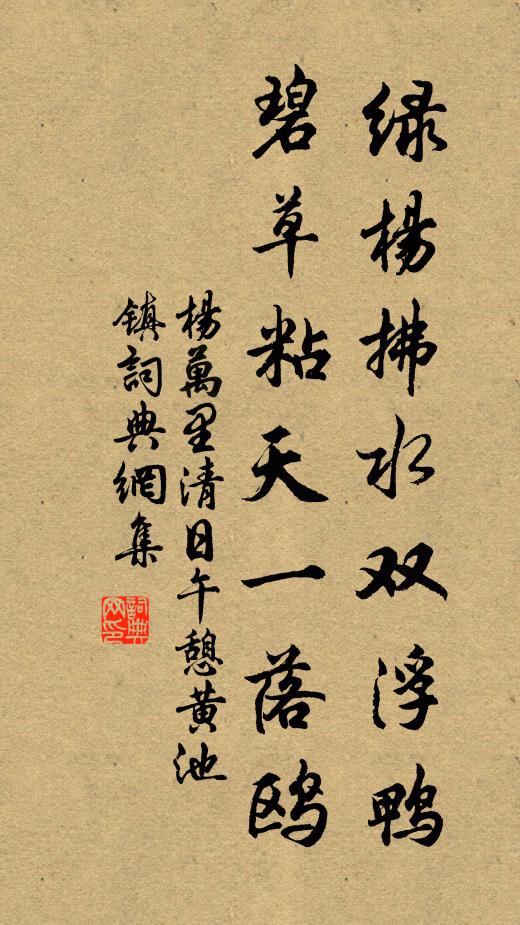 绿杨拂水双浮鸭
碧草粘天一落鸥
楊萬里清日午憩黄池
镇詞典網集
詞典网印